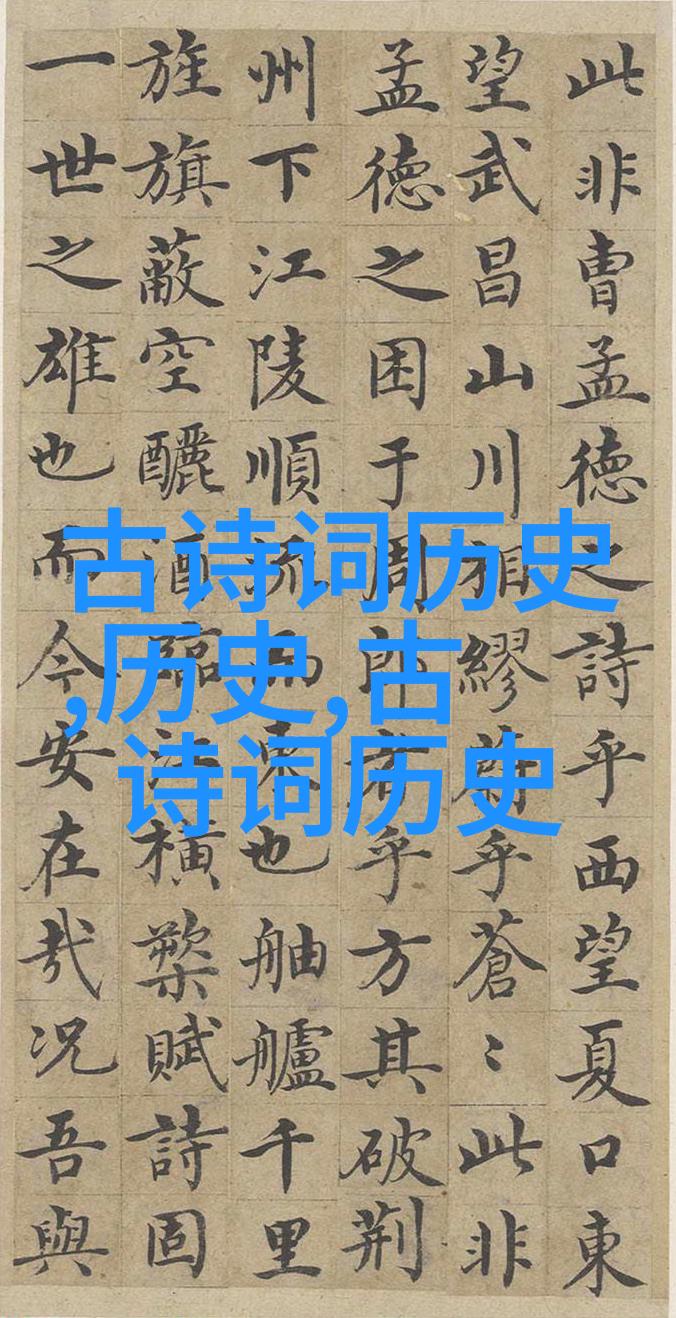 此非曹孟徳之詩乎西望夏口東
望武昌山川相繆蔚乎蒼〻此非
孟徳之困于周郎者乎方其破荊
州下江陵順流而東也舳艫千里
旌旗蔽空釃酒臨江横槊賦詩固
一世之雄也而今安在哉况吾與
古诗词历史
,历史,古
诗词历史